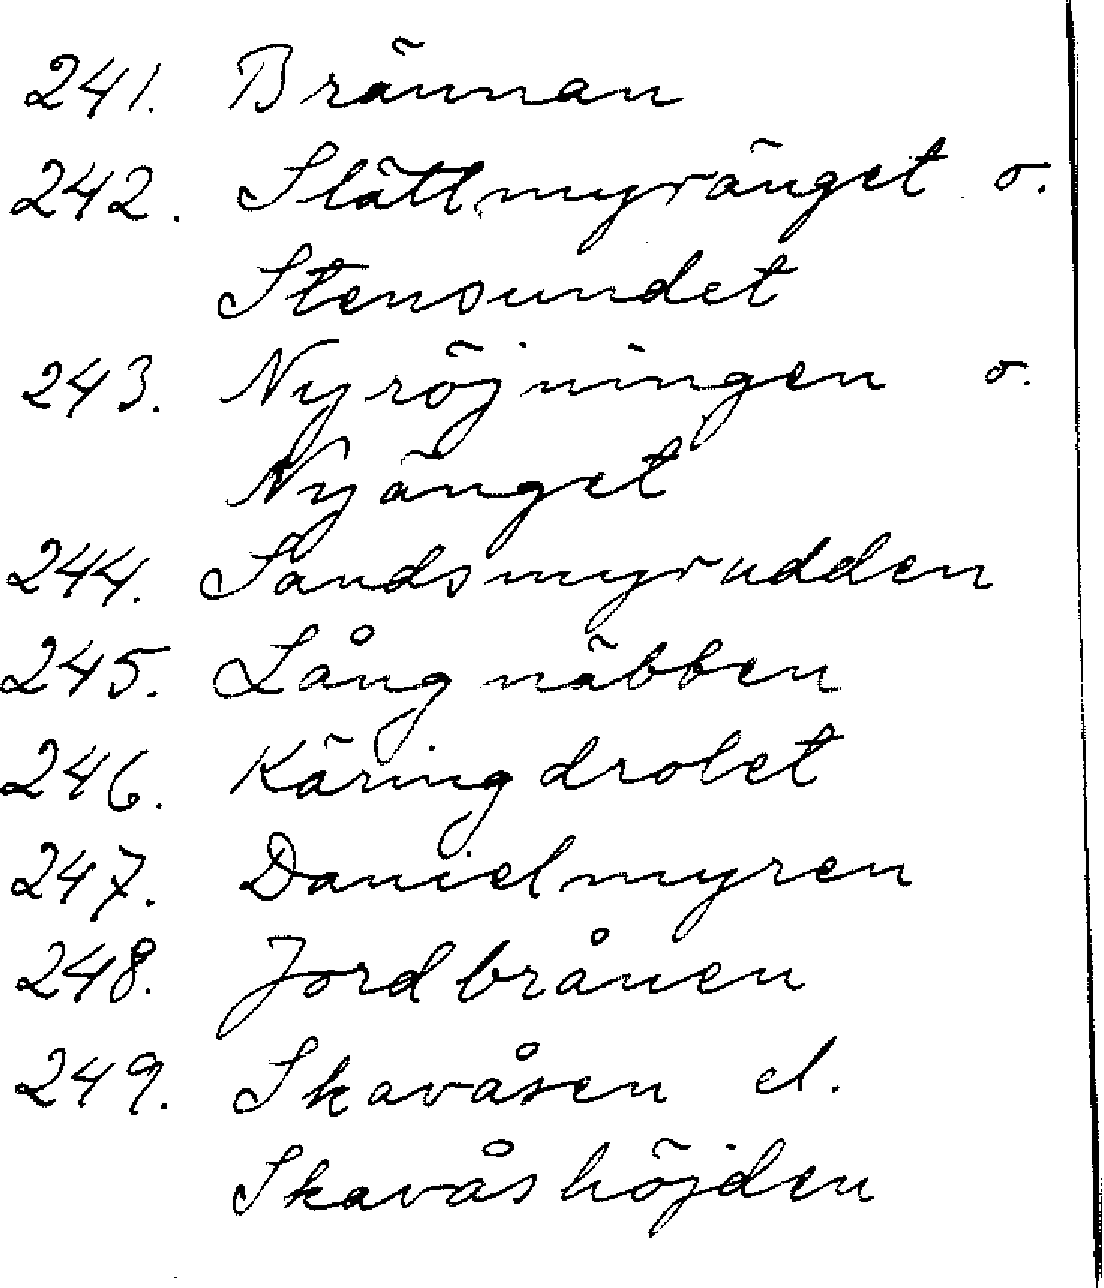 241. Brännan
242. Slättmyränget o.
Stensundet
243. Nyröjningen o.
Nyänget
244. Sandsmyrudden
245. Långnäbben
246. Käringdrolet
247. Danielmyren
248. Jordbrånen
249. Skavåsen el.
Skavåshöjden